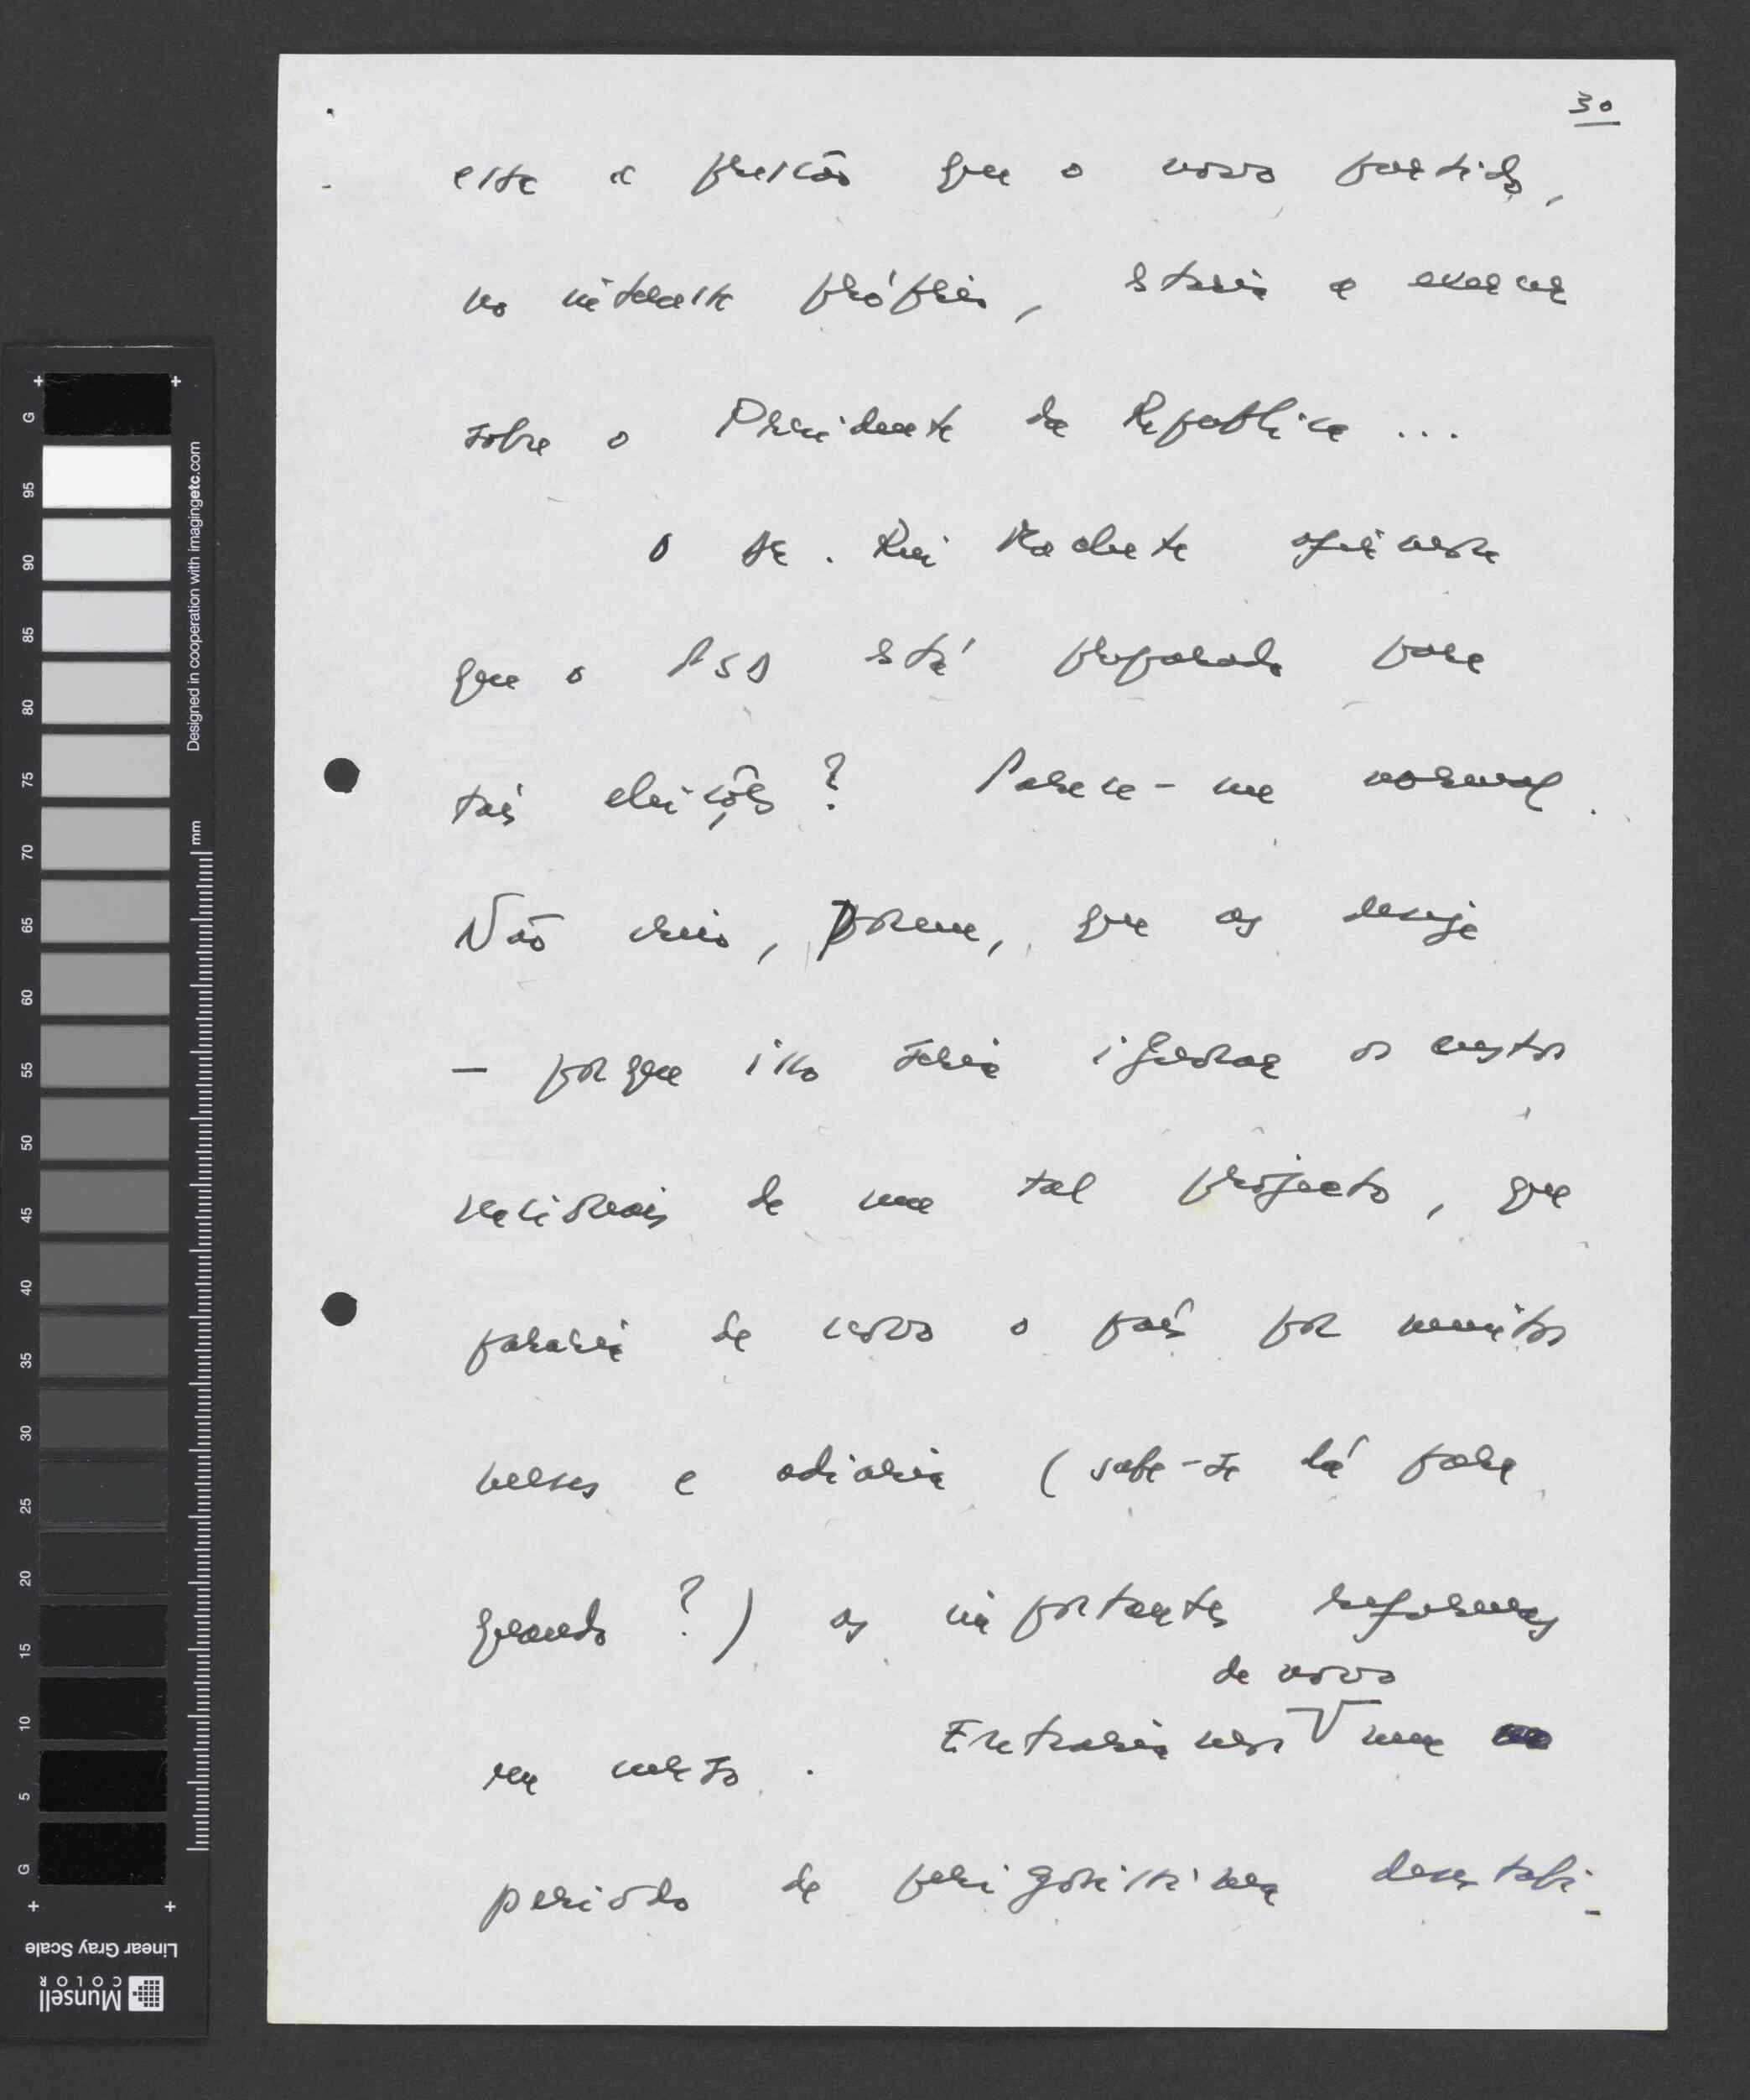 30
esta a pressão que o novo partido,
no interesse próprio, estaria a exercer
sobre o Presidente da República ...
O Dr. Rui Machete opina
que o PSD está preparado para
tais eleições? Parece-me normal.
Não creio, porém, que as deseje
— porque isso seria ignorar os custos
nacionais de um tal projecto, que
pararia de novo o país por muitos
meses e adiaria (sabe-se lá para
quando?) as importantes reformas
de novo
em curso. Entraríamos V num
período de perigosíssima desestabi-
G
95
90
85
80
75
70
65
60
55
50
45
40
35
30
25
20
15
10
5
G
mm
Designed in cooperation with imagingetc.com
Linear Gray Scale
Munsell
COLOR